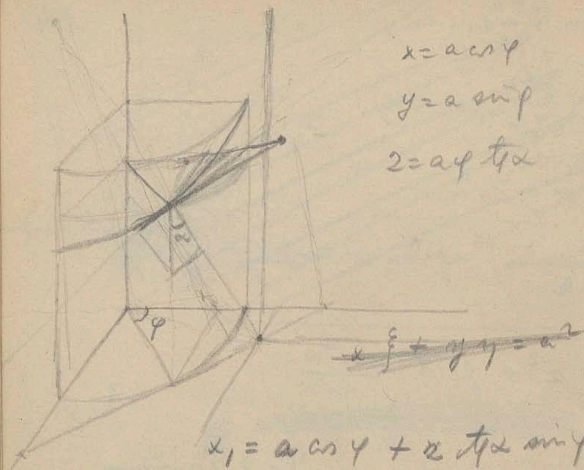 x = a cos φ
y = a sin φ
z = a φ tg α
α
φ
x ξ + y η = a²
x₁ = a cos φ + z tg α sin φ